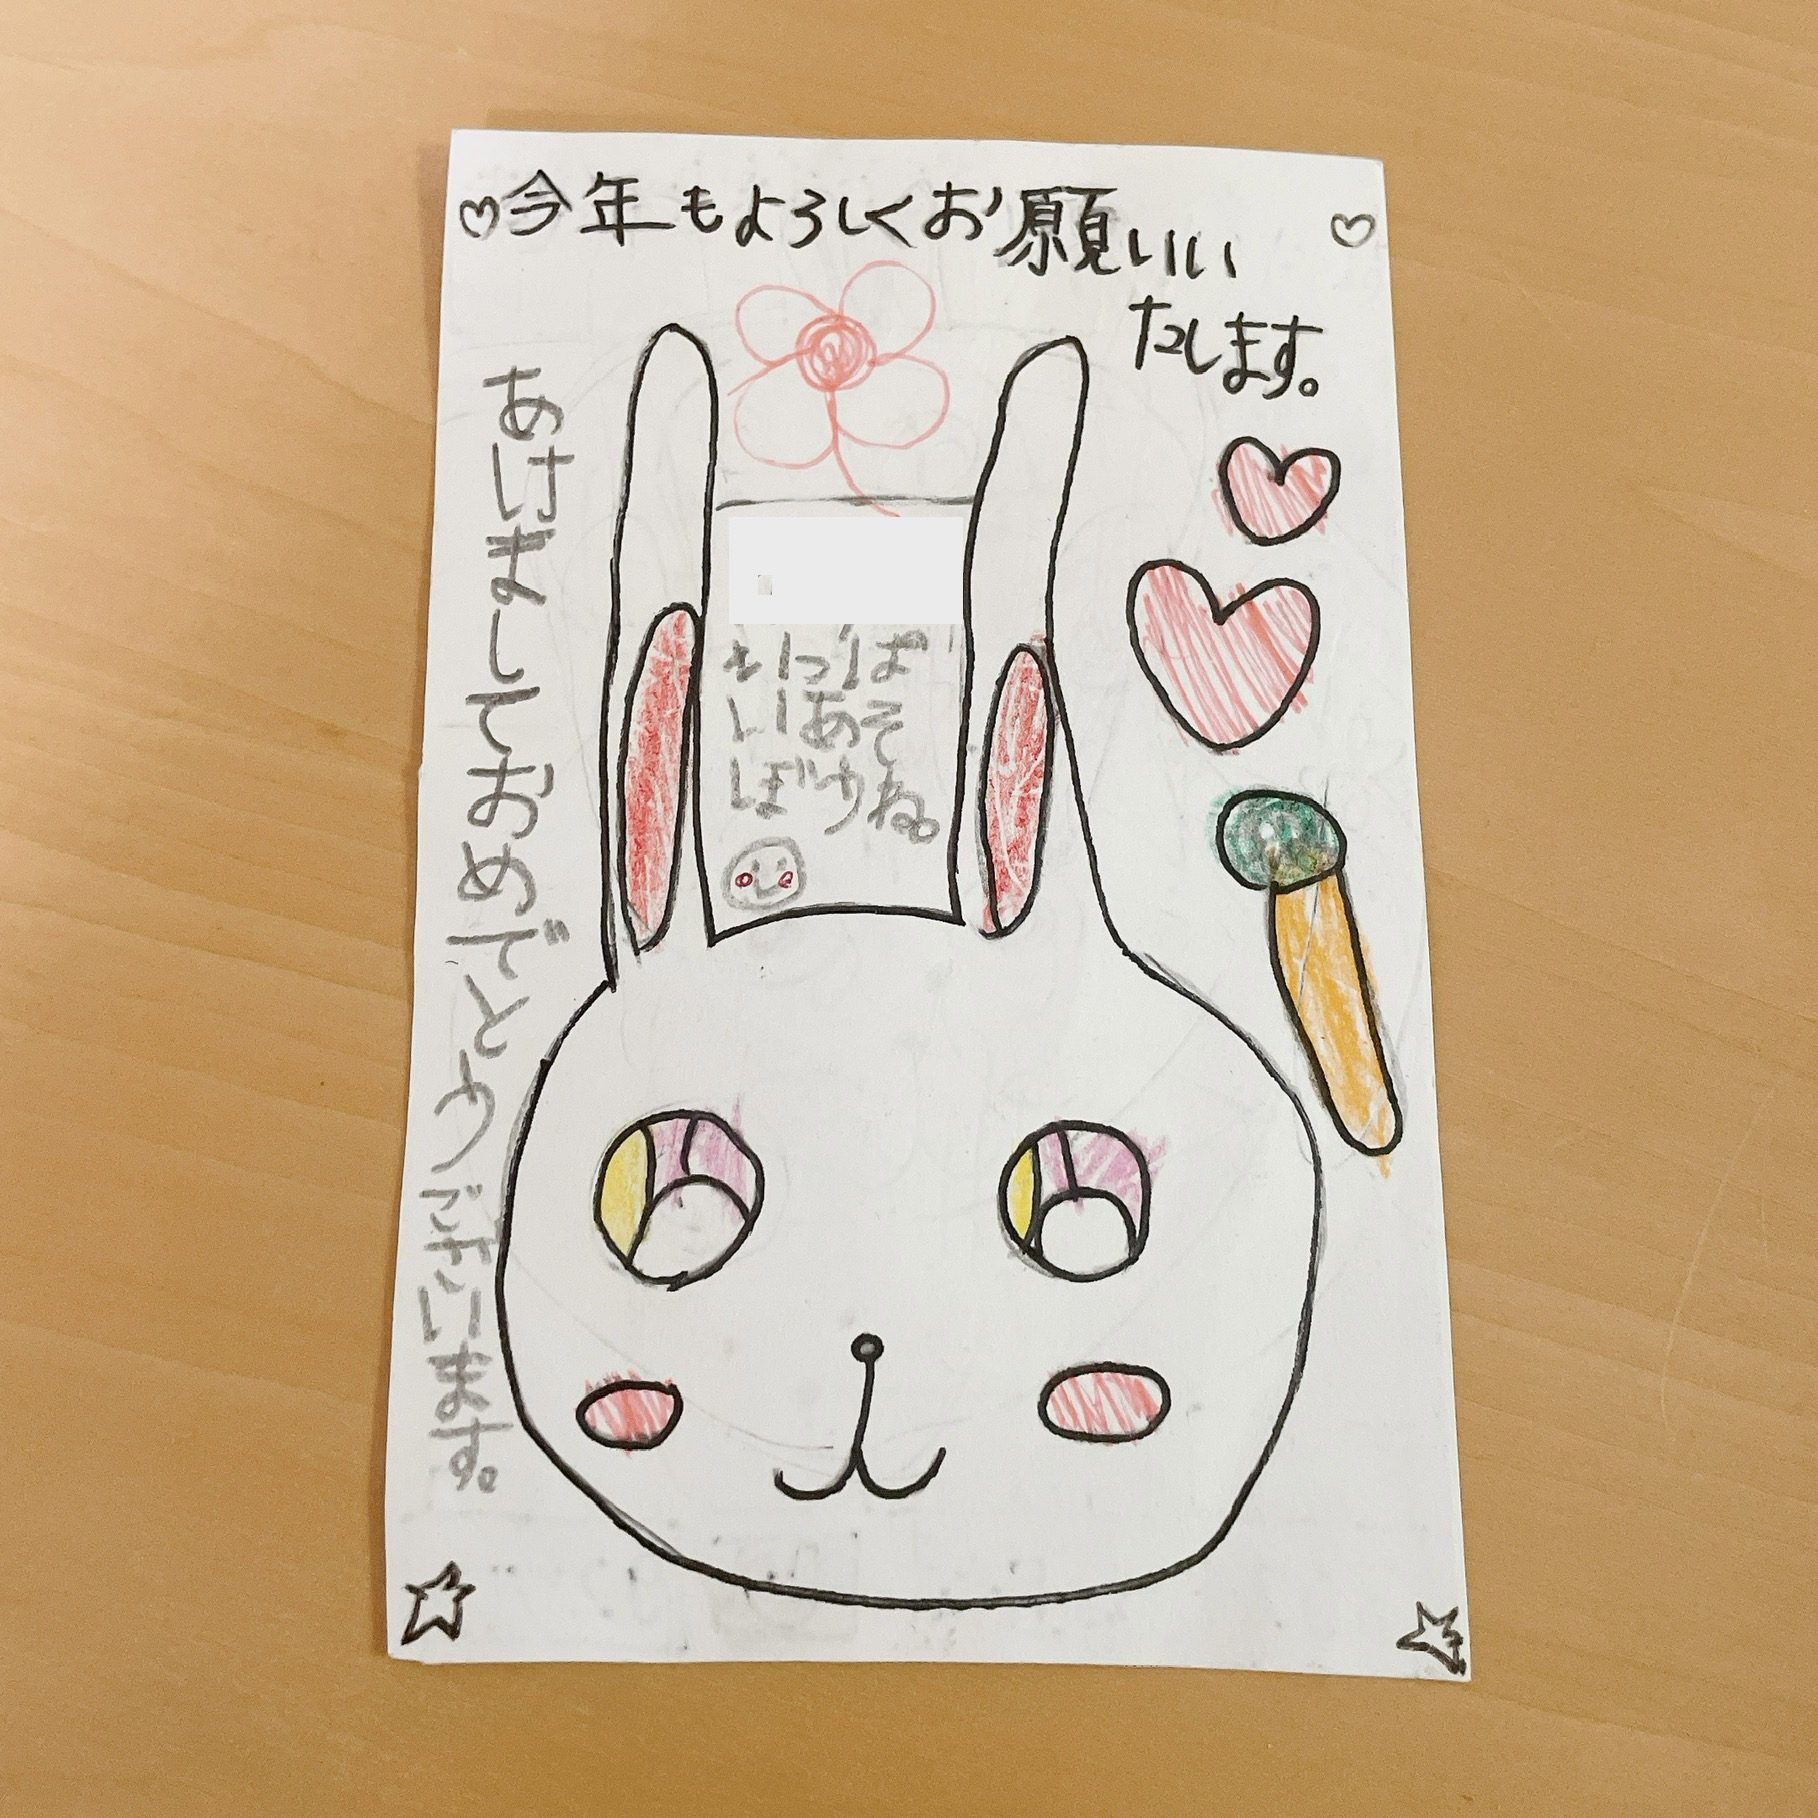 今年もよろしくお願いい
たします。
あけましておめでとうございます。
いっぱ
いあそ
ぼうね。